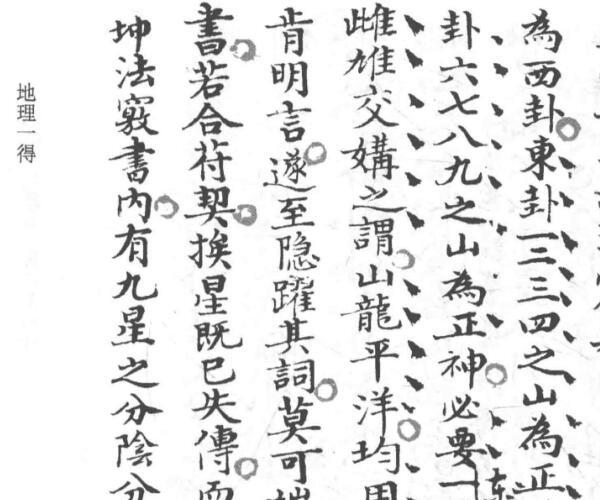 為西卦東卦一二三四之山為正
卦六七八九之山為正神必要一
雌雄交媾之謂山龍平洋均用
肯明言遂至隐躍其詞莫可
書若合苻契挨星既已失傳而
坤法竅書内有九星之分陰分
地理一得